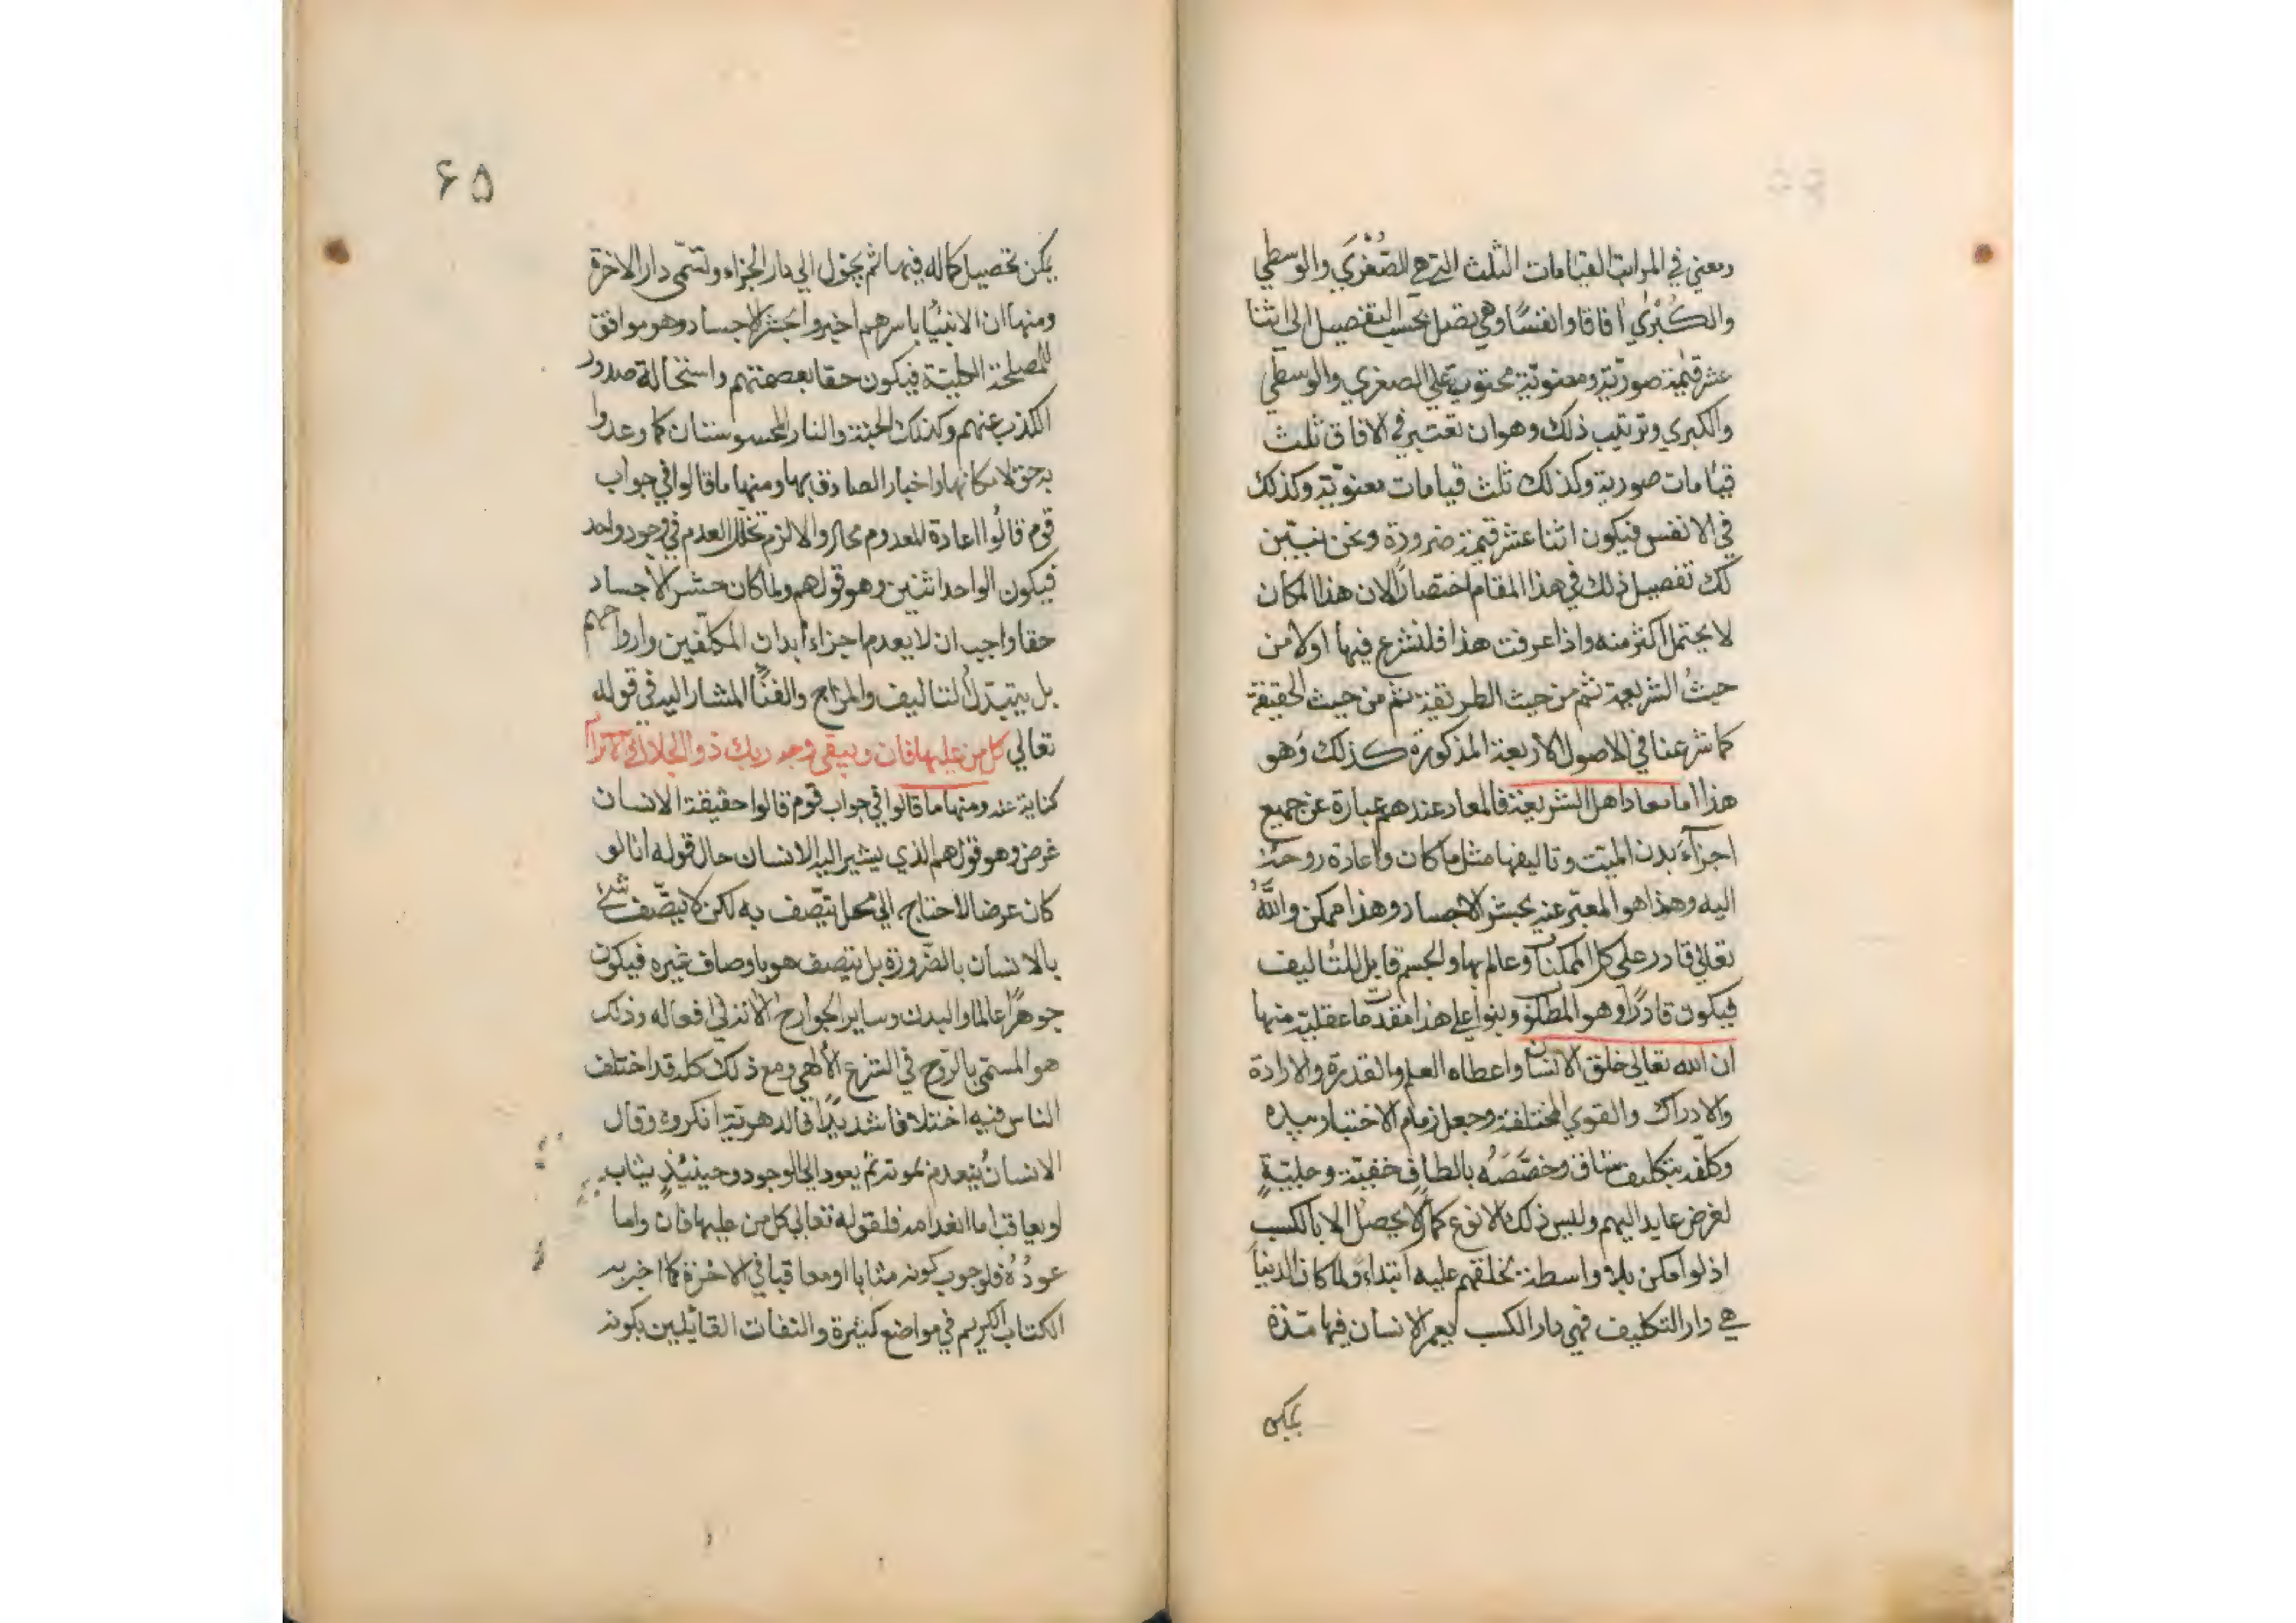 ومعني في المراتب القيامات الثلث التي هي الصُّغْرَي والوسطي
والكُبْرٰي اٰفاقا وانفسًا وهي تصل بحسب التفصيل الي اثنا
عشر قيٰمة صوريّة ومعنويّة محتوية علي الصغري والوسطي
والكبري وترتيب ذلك وهو ان تعتبر في الافاق ثلث
قيامات صورية وكذلك ثلث قيامات معنويّة وكذلك
في الانفس فيكون اثنا عشر قيٰمة ضرورة ونحن نبيّن
لك تفصيل ذلك في هذا المقام اختصارًا لان هذا المكان
لا يحتمل اكثر منه واذا عرفت هذا فلنشرع فيها اولا من
حيثُ الشريعة ثم من حيث الطريقة ثم من حيث الحقيقة
كما شرعنا في الاصول الاربعة المذكورة كذلك وهو
هذا اما معاد اهل الشريعة فالمعاد عندهم عبارة عن جميع
اجزآء بدن الميّت وتاليفها مثل ما كان واعادة روحه
اليه وهذا هو المعبّر عنه بحشر الاجساد وهذا ممكن واللّٰهُ
تعالي قادر علي كل الممكنات وعالم بها والجسم قابل للتاليف
فيكون قادرًا وهو المطلوب وبنوا علي هذا مقدمات عقليّة منها
ان الله تعالي خلق الانسان واعطاه العلم والقدرة والارادة
والادراك والقوي المختلفة وجعل زمام الاختيار بيده
وكلّفه بتكليف شاق وخصّصَهُ بالطاف خفيّة وجليّةٍ
لغرض عايد اليهم وليس ذلك الا نوع كمال لا يحصل الا بالكسب
اذ لو امكن بلا واسطة لخلقهم عليه ابتداءً ولما كان الدنيا
هي دار التكليف فهي دار الكسب يعمر الانسان فيها مدّة
يمكن
۶۵
يمكن تحصيل كماله فيها ثم يحوّل الي دار الجزاء وتسمّي دار الاخرة
ومنها ان الانبيٰا باسرهم اخبروا بحشر الاجساد وهو موافق
للمصلحة الكلية فيكون حقا لعصمتهم واستحالة صدور
الكذب عنهم وكذلك الجنة والنار المحسوستان كما وعدوا
به حق لامكانها واخبار الصادق بها ومنها ما قالوا في جواب
قوم قالُوا اعادة المعدوم محال والا لزم تخلّل العدم في وجود واحد
فيكون الواحد اثنين وهو قولهم ولما كان حشر الاجساد
حقا واجب ان لا يعدم اجزاء ابدان المكلّفين وارواحهم
بل يتبدّل التاليف والمزاج والفنآ المشار اليه في قوله
تعالي كل من عليها فان ويبقي وجه ربك ذو الجلال والاكرام
كناية عنه ومنها ما قالوا في جواب قوم قالوا حقيقة الانسان
عرض وهو قولهم الذي يشير اليه الانسان حال قوله انا لو
كان عرضا لاحتاج الي محل يتّصف به لكن لا يتّصف شئ
بالانسان بالضّرورة بل يتصف هو باوصاف غيره فيكون
جوهرًا عالما والبدن وساير الجوارح الاته في افعاله وذلك
هو المسمّي بالرّوح في الشرع الالهي ومع ذلك كله قد اختلف
الناس فيه اختلافا شديدًا فالدهرية انكروه وقال
الانسانُ ينعدم بموته ثم يعود الي الوجود وحينئذٍ يثاب
او يعاقب اما انعدامه فلقوله تعالي كل من عليها فان واما
عودُهُ فلوجوب كونه مثابا او معاقبا في الاخرة كما اخبر به
الكتاب الكريم في مواضع كثيرة والتفات القائلين بكونه